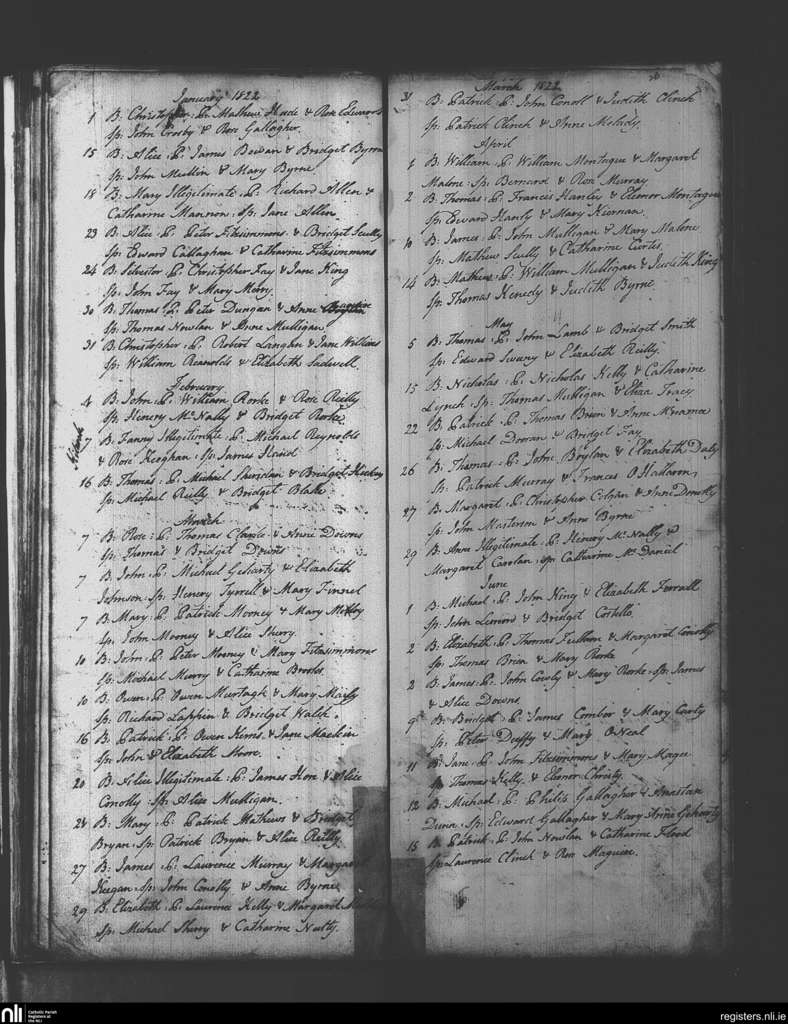 January 1822
1 B: Christopher: P: Mathew Hade & Rose Edwards
Sp: John Crosby & Rose Gallagher
15 B: Alice: P: James Bowan & Bridget Byrn
Sp: John Mullin & Mary Byrne
18 B: Mary Illegitimate: P: Richard Allen &
Catharine Mannon: Sp: Jane Allen
23 B: Alice P: Peter Fitzsimmons & Bridget Scully
Sp: Edward Callaghan & Catharine Fitzsimmons
24 B: Silvester P: Christopher Fay & Jane King
Sp: John Fay & Mary Merry
30 B: Thomas: P: Peter Dungan & Anne
Sp: Thomas Nowlan & Anne Mulligan
31 B: Christopher: P: Robert Langhn & Jane Willins
Sp: William Reanolds & Elizabeth Sadwell
February
4 B: John: P: William Rorke & Rose Reilly
Sp: Henery McNally & Bridget Rorke
7 B: Fanny Illegitimate: P: Michael Reynolds
& Rose Keoghan: Sp: James Hand
16 B: Thomas: P: Michael Sheridan & Bridget
Sp: Michael Reilly & Bridget Blake
March
7 B: Rose: P: Thomas Clarke & Anne Downs
Sp: Thomas & Bridget Downs
7 B: John: P: Michael Geharty & Elizabeth
Johnson: Sp: Henery Tyrrell & Mary Finnel
7 B: Mary: P: Patrick Mooney & Mary
Sp: John Mooney & Alice Sherry
10 B: John: P: Peter Mooney & Mary Fitzsimmons
Sp: Michael Murry & Catharine Brooks
10 B: Owen: P: Owen Murtagh & Mary
Sp: Richard Lappin & Bridget Walsh
16 B: Patrick: P: Owen Kerns & Jane Mackin
Sp: John & Elizabeth Moore
20 B: Alice Illegitimate: P: James Hore & Alice
Conolly: Sp: Alice Mulligan
24 B: Mary: P: Patrick Mathews & Bridget
Bryan: Sp: Patrick Bryan & Alice Reilly
27 B: James: P: Laurence Murray & Margar
Keegan: Sp: John Conolly & Anne Byrne
29 B: Elizabeth: P: Laurence Kelly & Margaret
Sp: Michael Sherry & Catharine Nulty
March 1822
31 B: Patrick: P: John Conoll & Judith Clinch
Sp: Patrick Clinch & Anne Melady
April
1 B: William: P: William Montague & Margaret
Malone: Sp: Bernard & Rose Murray
2 B: Thomas: P: Frances Hanley & Elenor Montague
Sp: Edward Hanly & Mary Kiernan
10 B: James: P: John Mulligan & Mary Malone
Sp: Mathew Scully & Catharine Curtis
14 B: Mathew: P: William Mulligan & Judith King
Sp: Thomas Kenedy & Judith Byrne
May
5 B: Thomas: P: John Lamb & Bridget Smith
Sp: Edward Sweny & Elizabeth Reilly
15 B: Nicholas: P: Nicholas Kelly & Catharine
Lynch: Sp: Thomas Mulligan & Eliza Tracy
22 B: Patrick: P: Thomas Brien & Anne
Sp: Michael Dooran & Bridget Fay
26 B: Thomas: P: John Boylan & Elizabeth Daly
Sp: Patrick Murray & Frances O'Halloran
27 B: Margaret: P: Christopher Colgan & Anne Donelly
Sp: John Masterson & Anne Byrne
29 B: Anne Illegitimate: P: Henery McNally &
Margaret Carolan: Sp: Catharine McDaniel
June
1 B: Michael: P: John King & Elizabeth Ferrall
Sp: John Lemond & Bridget Costello
2 B: Elizabeth: P: Thomas Fulham & Margaret Conolly
Sp: Thomas Brien & Mary Rorke
2 B: James: P: John Couly & Mary Rorke: Sp: James
& Alice Downs
9 B: Bridgeth: P: James Comber & Mary Carty
Sp: Peter Duffy & Mary ONeal
11 B: Jane: P: John Fitzsimmons & Mary Magee
Sp: Thomas Kelly & Elenor Christy
12 B: Michael: P: Philip Gallagher & Anastan
Dunn: Sp: Edward Gallagher & Mary Anne Geharty
15 B: Patrick: P: John Nowlan & Catharine Flood
Sp: Laurence Clinch & Rose Maguire
nli Catholic Parish
Registers at
the NLI
registers.nli.ie